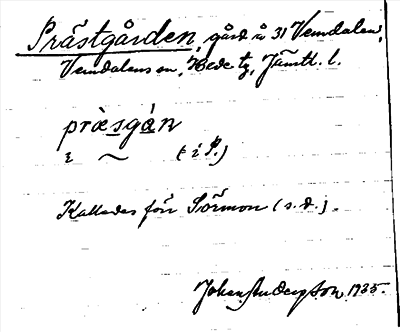 Prästgården, gård å 31 Vemdalen,
Vemdalens sn, Hede tg, Jämtl. l.
præsgàn
i ~ (= i P.)
Kallades förr Sörmon (s.d.).
Johan Anderson 1935.